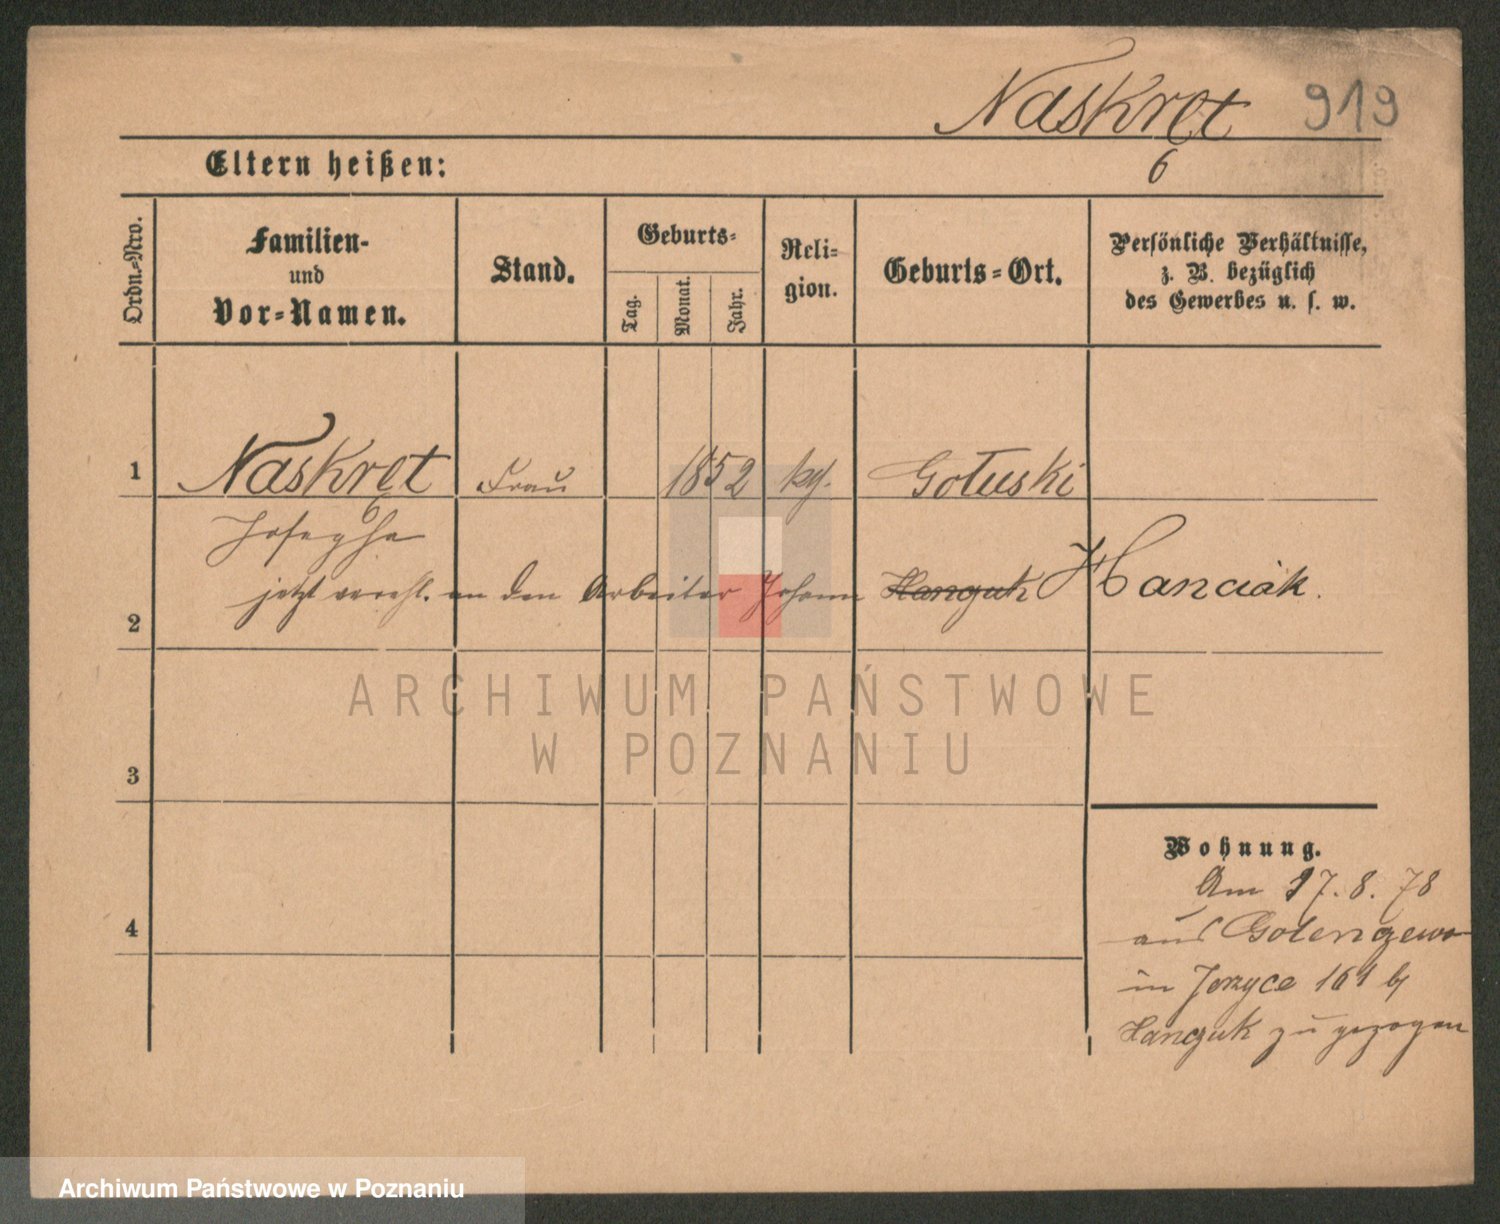 Naskret 919
6
Eltern heißen:
Ordn.-Nro.
Familien-
und
Vor-Namen.
Stand.
Geburts-
Tag.
Monat.
Jahr.
Reli-
gion.
Geburts-Ort.
Persönliche Verhältnisse,
z. B. bezüglich
des Gewerbes u. s. w.
1 Naskret Frau 1852 kg. Gołuski
6
Josepha
jetzt verehl. an den Arbeiter Johann Hanguk Hanciák.
2
3
4
ARCHIWUM PAŃSTWOWE
W POZNANIU
Wohnung.
Am 17. 8. 78
aus Golenczewo
in Jerzyce 161 bj
Hanguk zu gezogen
Archiwum Państwowe w Poznaniu